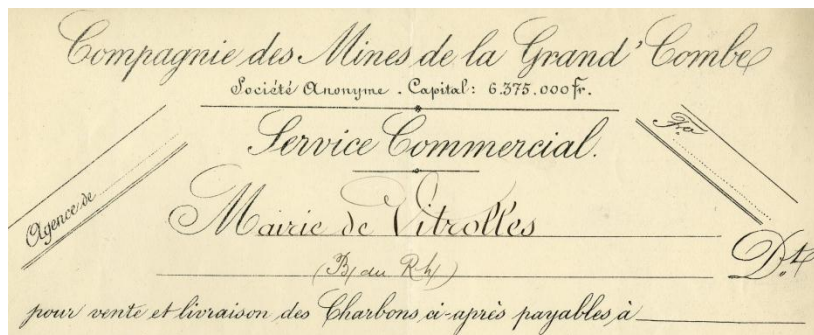 Compagnie des Mines de la Grand'Combe
Société Anonyme . Capital: 6.375.000 Fr.
Service Commercial.
Agence de
Fo
Mairie de Vitrolles
(B/ du Rh/)
D.t
pour vente et livraison des Charbons ci-après payables à